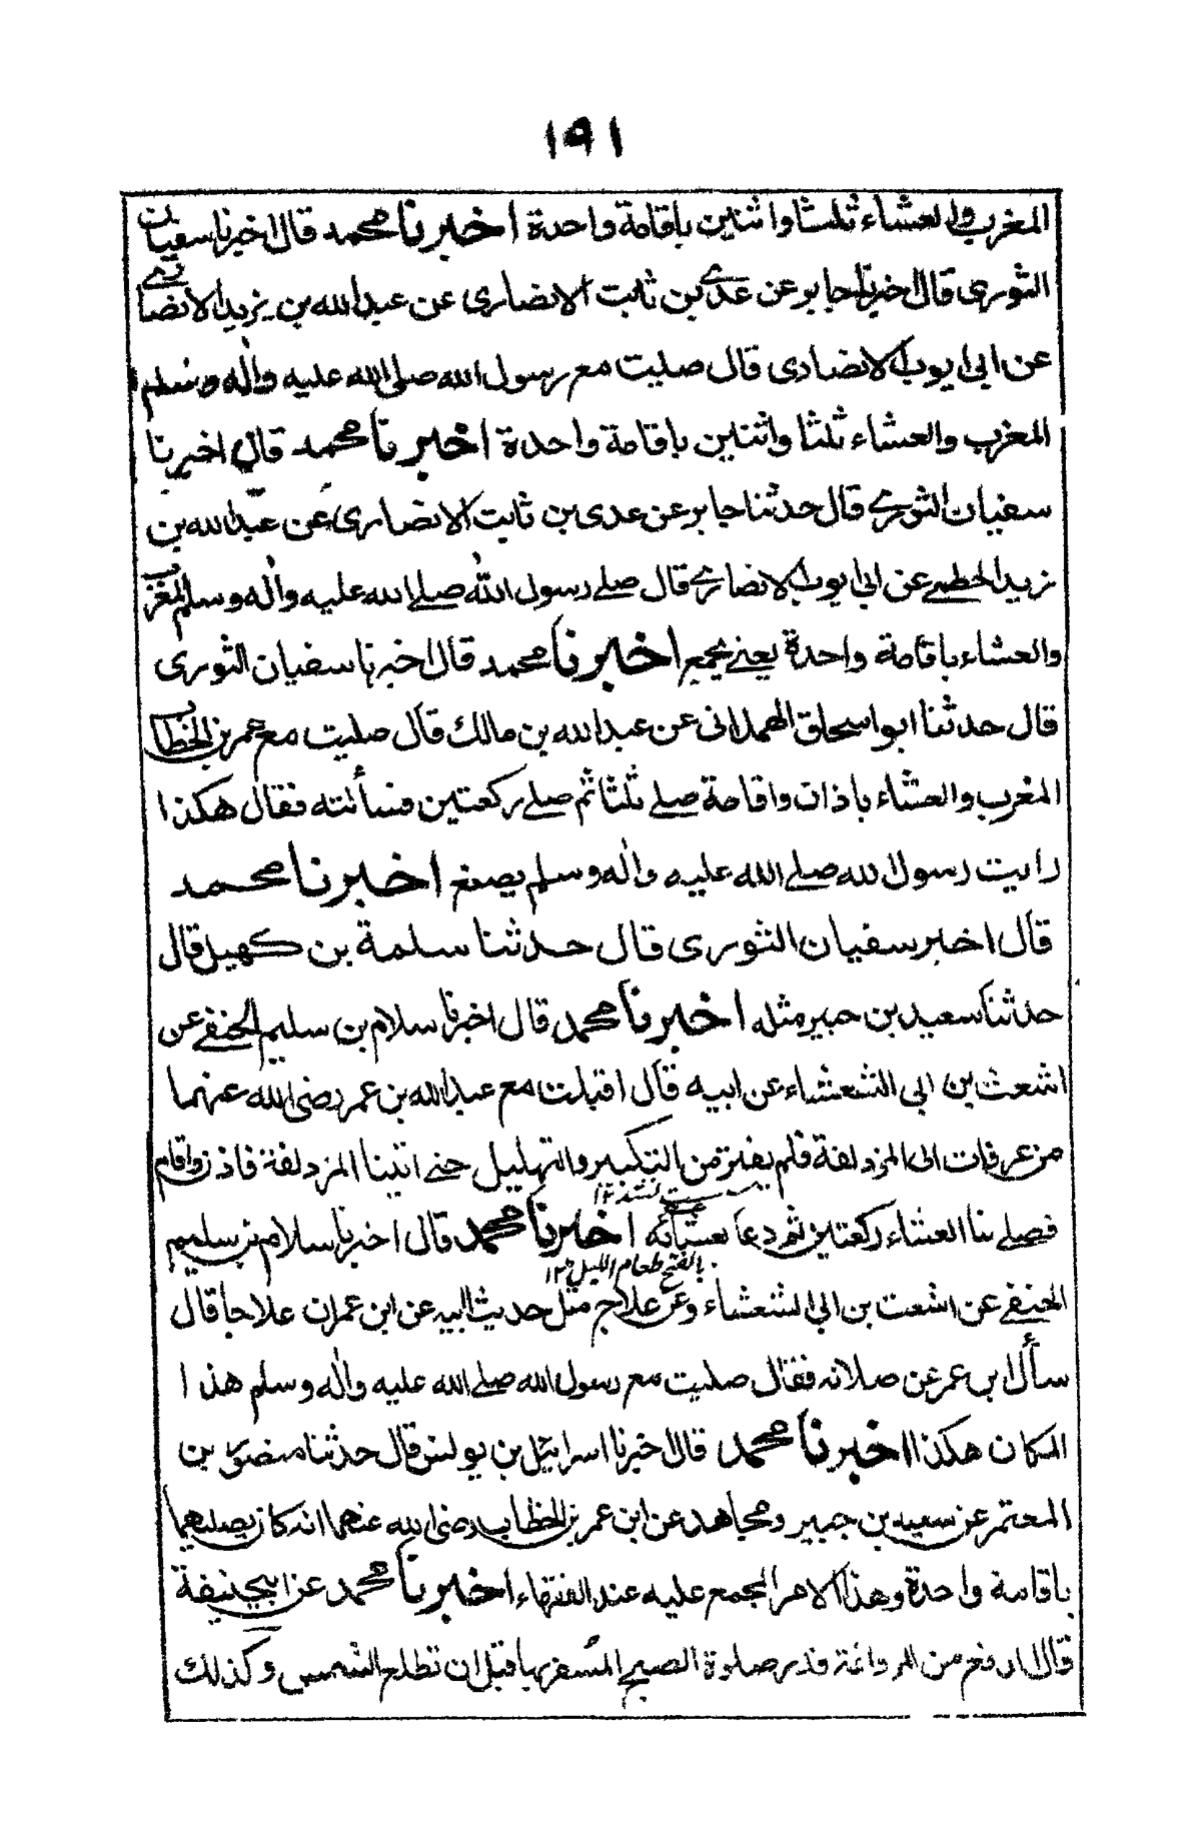 ١٩١
المغرب والعشاء ثلثا واثنتين باقامة واحدة اخبرنا محمد قال اخبرنا سفيان
الثوري قال اخبرنا جابر عن عدي بن ثابت الانصاري عن عبدالله بن يزيد الانصاري
عن ابي ايوب الانصاري قال صليت مع رسول الله صلى الله عليه واٰله وسلم
المغرب والعشاء ثلثا واثنتين باقامة واحدة اخبرنا محمد قال اخبرنا
سفيان الثوري قال حدثنا جابر عن عدى بن ثابت الانصاري عن عبدالله بن
يزيد الخطمے عن ابي ايوب الانصاري قال صلے رسول الله صلے الله عليه واٰله وسلم المغرب
والعشاء باقامة واحدة يعنے بجمع اخبرنا محمد قال اخبرنا سفيان الثوري
قال حدثنا ابو اسحاق الهمدانى عن عبدالله بن مالك قال صليت مع عمر بن الخطاب
المغرب والعشاء باذان واقامة صلے ثلثا ثم صلے ركعتين فسألته فقال هكذا
رايت رسول الله صلے الله عليه واٰله وسلم يصنع اخبرنا محمد
قال اخبر سفيان الثورى قال حدثنا سلمة بن كهيل قال
حدثنا سعيد بن جبير مثله اخبرنا محمد قال اخبرنا سلام بن سليم الحنفے عن
اشعث بن ابي الشعشاء عن ابيه قال اقبلت مع عبدالله بن عمر رضى الله عنهما
من عرفات الى المزدلفة فلم يفتر من التكبير والتهليل حتے اتينا المزدلفة فاذن واقام
فصلے بنا العشاء ركعتين ثم دعا بعشائه اخبرنا محمد قال اخبرنا سلام بن سليم
بالفتح طعام الليل ١٢
الحنفے عن اشعث بن ابي الشعشاء وعن علاج مثل حديث ابيه عن ابن عمران علاجا قال
سأل ابن عمر عن صلاته فقال صليت مع رسول الله صلے الله عليه واٰله وسلم هذا
المكان هكذا اخبرنا محمد قال اخبرنا اسرائيل بن يونس قال حدثنا منصور بن
المعتمر عن سعيد بن جبير ومجاهد عن ابن عمر بن الخطاب رضى الله عنهما انه كان يصليهما
باقامة واحدة وهذا الامر المجمع عليه عند الفقهاء اخبرنا محمد عن ابيحنيفة
قال من قدر صلوة الصبح المسفر بها قبل ان تطلع الشمس وكذلك